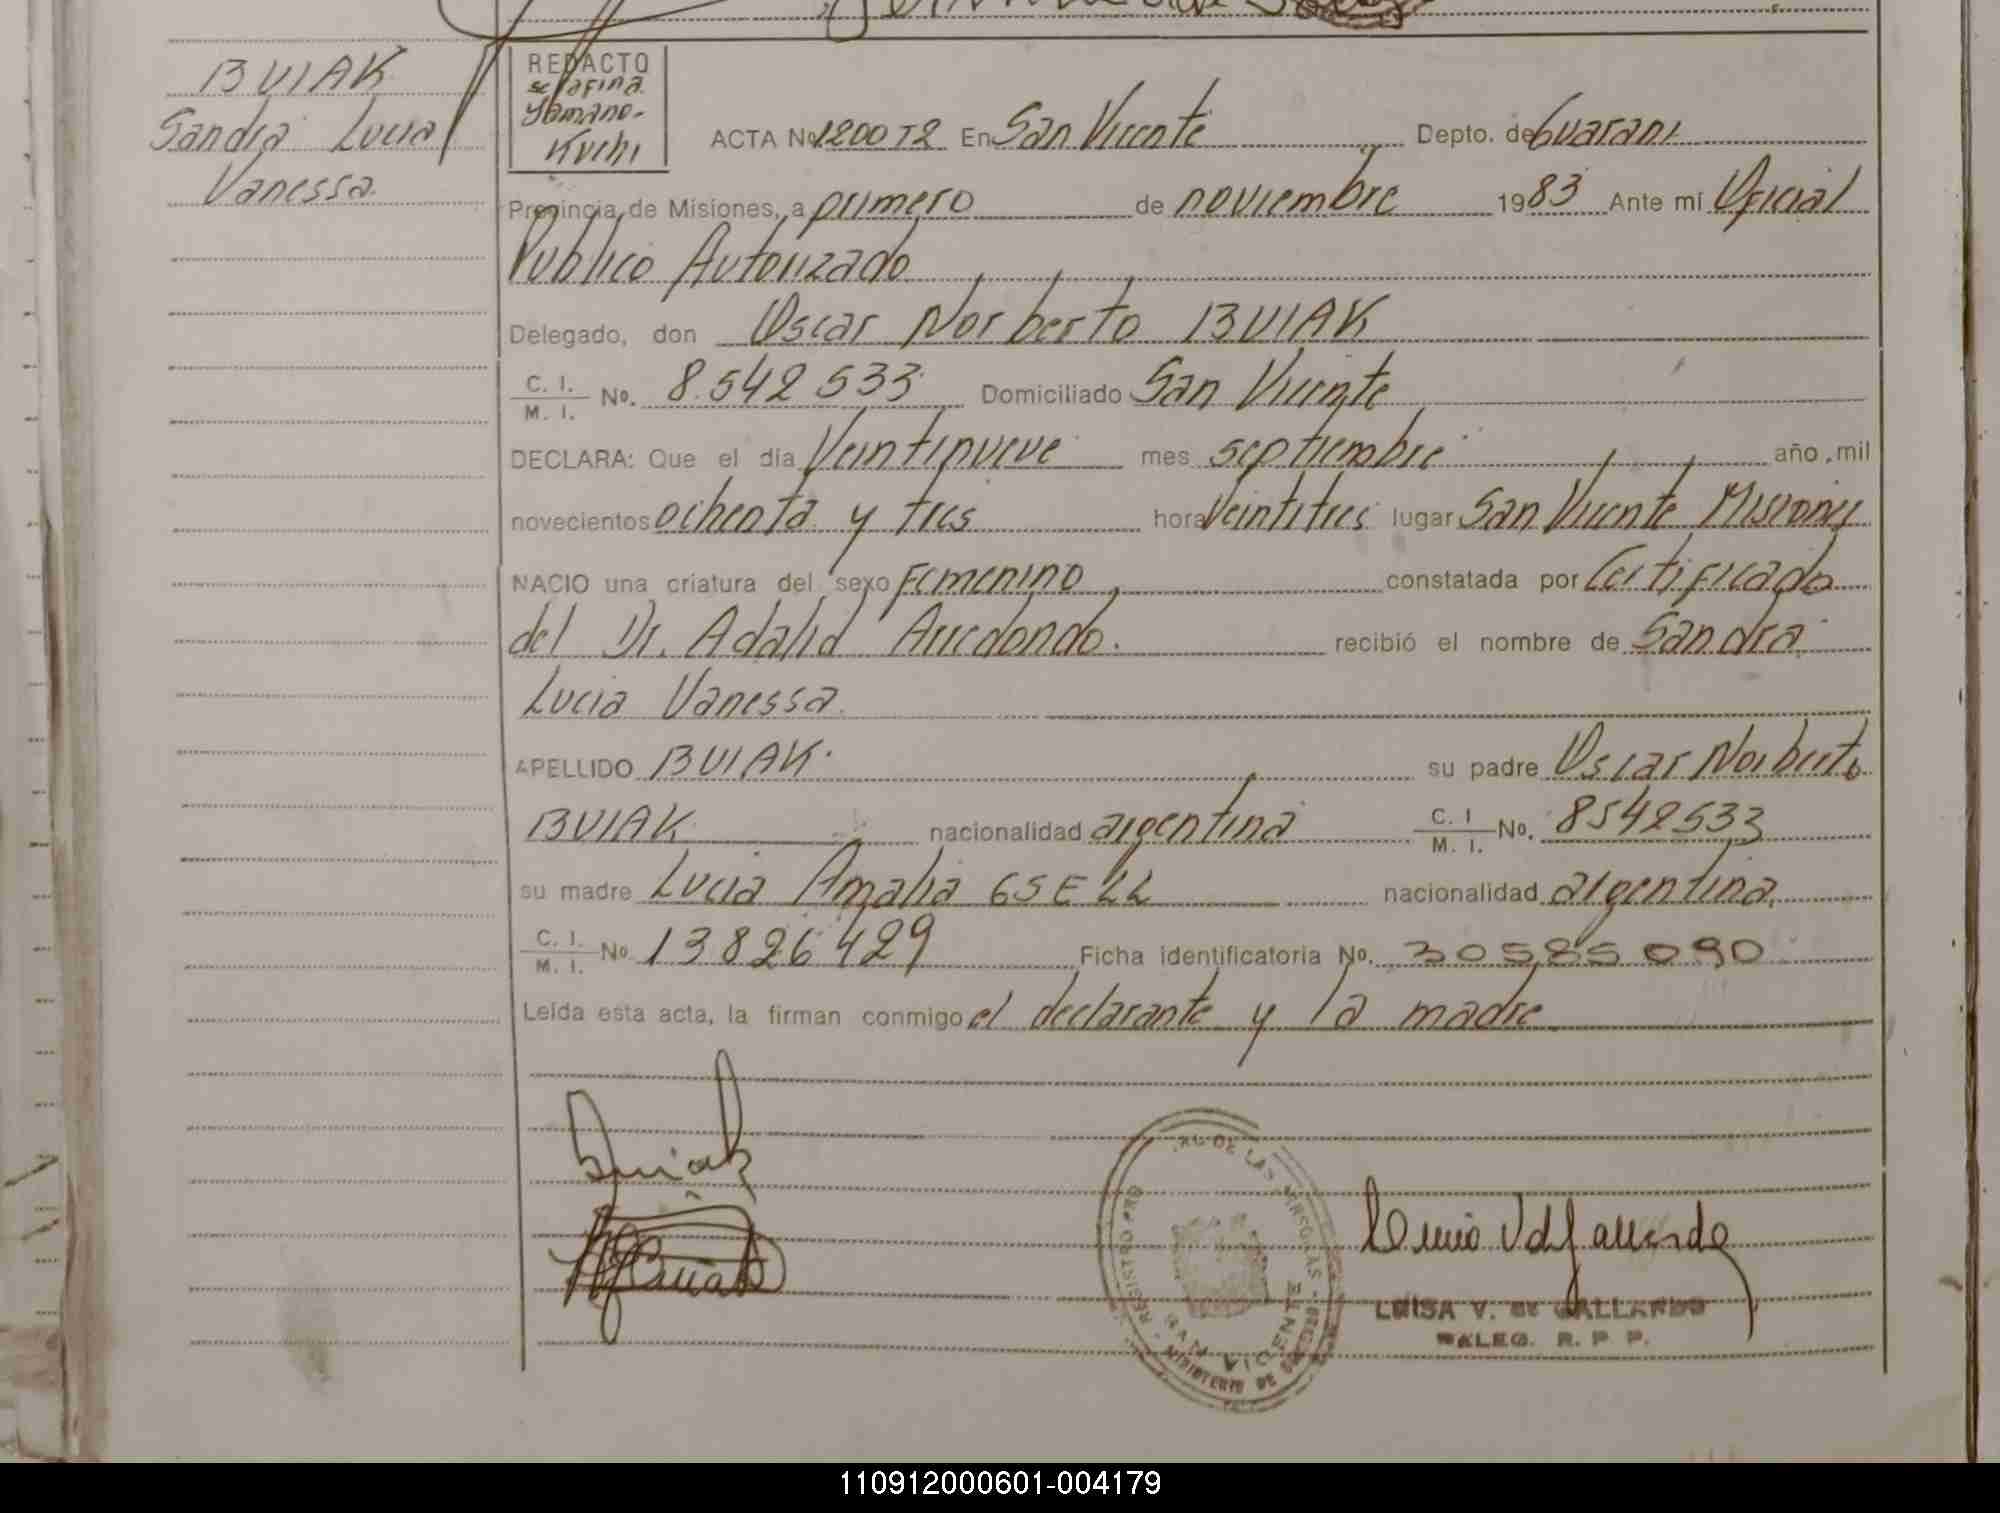 BUIAK
Sandra Lucia
Vanessa
REDACTO
serafina
Yamano-
Kuchi
ACTA Nº 1200 T2 En San Vicente Depto. de Guarani
Provincia de Misiones, a primero de noviembre 1983 Ante mí Oficial
Publico Autorizado
Delegado, don Oscar Norberto BUIAK
C. I.
M. I. Nº. 8.542 533 Domiciliado San Vicente
DECLARA: Que el día Veintinueve mes septiembre año, mil
novecientos ochenta y tres hora Veintitres lugar San Vicente Misiones
NACIO una criatura del sexo Femenino constatada por Certificado
del Dr. Adalid Arredondo. recibió el nombre de Sandra
Lucia Vanessa
APELLIDO BUIAK su padre Oscar Norberto
BUIAK nacionalidad argentina C. I
M. I. Nº. 8542533
su madre Lucia Amalia GSELL nacionalidad argentina.
C. I.
M. I. Nº 13826429 Ficha identificatoria Nº. 30585090
Leída esta acta, la firman conmigo el declarante y la madre
Buiak
REGISTRO PRO DE LAS PERSONAS
MINISTERIO DE
VICENTE
LUISA V. de GALLARDO
DALEG. R. P. P.
110912000601-004179